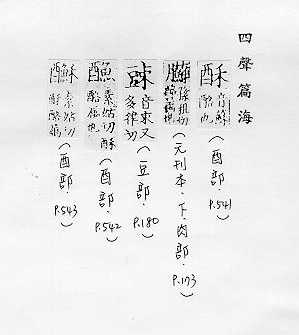 四聲篇海
酥 音蘇酪也 (酉部.P.541)
(元刊本.下.肉部.P.173)
音束又多律切 (豆部.P.180)
素姑切酥酪屬也 (酉部.P.542)
素姑切酥酪 (酉部.P.543)